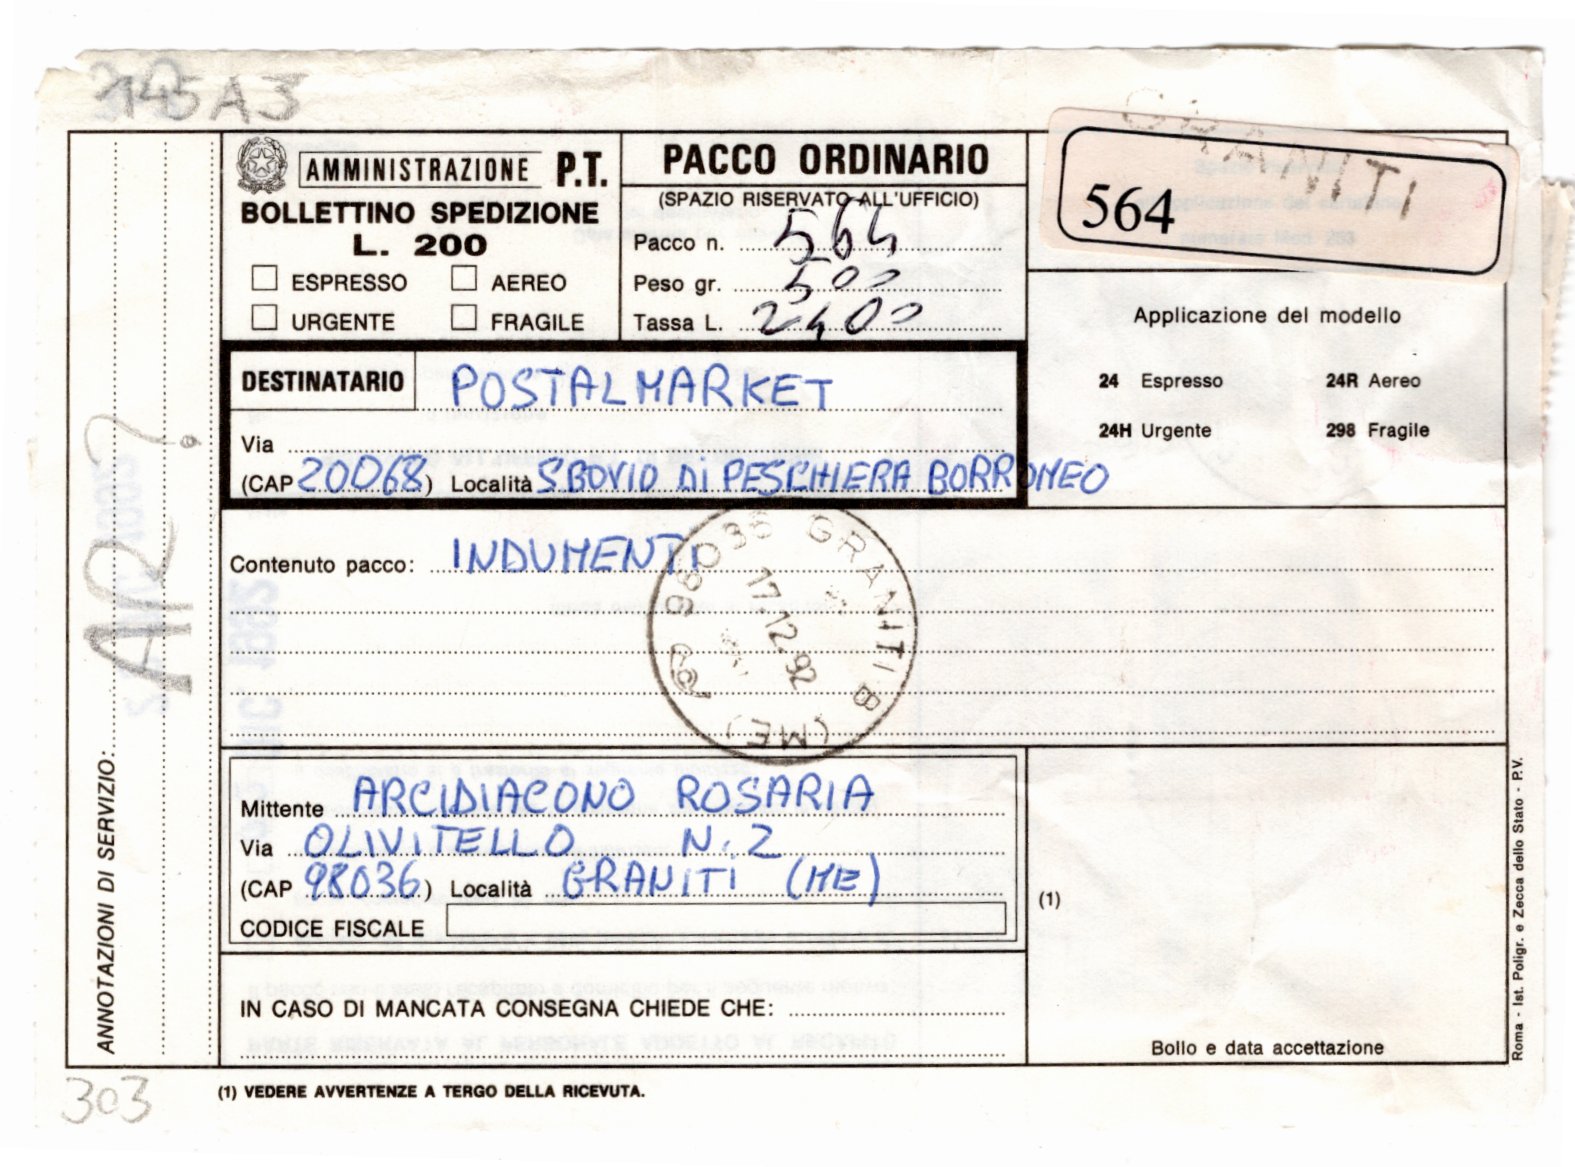 2145A3
AMMINISTRAZIONE P.T.
BOLLETTINO SPEDIZIONE
L. 200
ESPRESSO AEREO
URGENTE FRAGILE
PACCO ORDINARIO
(SPAZIO RISERVATO ALL'UFFICIO)
Pacco n. 564
Peso gr. 500
Tassa L. 2400
GRANITI
564
Applicazione del modello
24 Espresso 24R Aereo
24H Urgente 298 Fragile
DESTINATARIO POSTALMARKET
Via
(CAP 20068) Località S.BOVIO Di PESCHIERA BORROMEO
Contenuto pacco: INDUMENTI
98036 GRANITI B (ME)
17.12.92
Mittente ARCIDIACONO ROSARIA
Via OLIVITELLO N. 2
(CAP 98036) Località GRANITI (ME)
CODICE FISCALE
IN CASO DI MANCATA CONSEGNA CHIEDE CHE:
(1)
Bollo e data accettazione
ANNOTAZIONI DI SERVIZIO:
AR?
Roma - Ist. Poligr. e Zecca dello Stato - P.V.
303
(1) VEDERE AVVERTENZE A TERGO DELLA RICEVUTA.